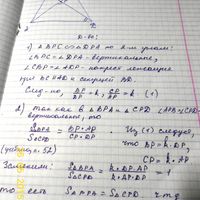 2
Д-во:
1) △BPC ~ △DPA по 2-м углам:
∠BPC = ∠DPA - вертикальные,
∠CBP = ∠ADP - накрест лежащие
при BC ∥ AD и секущей BD.
След-но, BP/DP = k, CP/AP = k (1)
2) так как в △BPA и △CPD ∠APB = ∠CPD -
вертикальные, то
S△BPA/S△CPD = BP·AP/CP·DP. Из (1) следует,
что BP = k·DP,
CP = k·AP
S△BPA/S△CPD = k·DP·AP/k·AP·DP = 1
то есть S△BPA = S△CPD ч.т.д